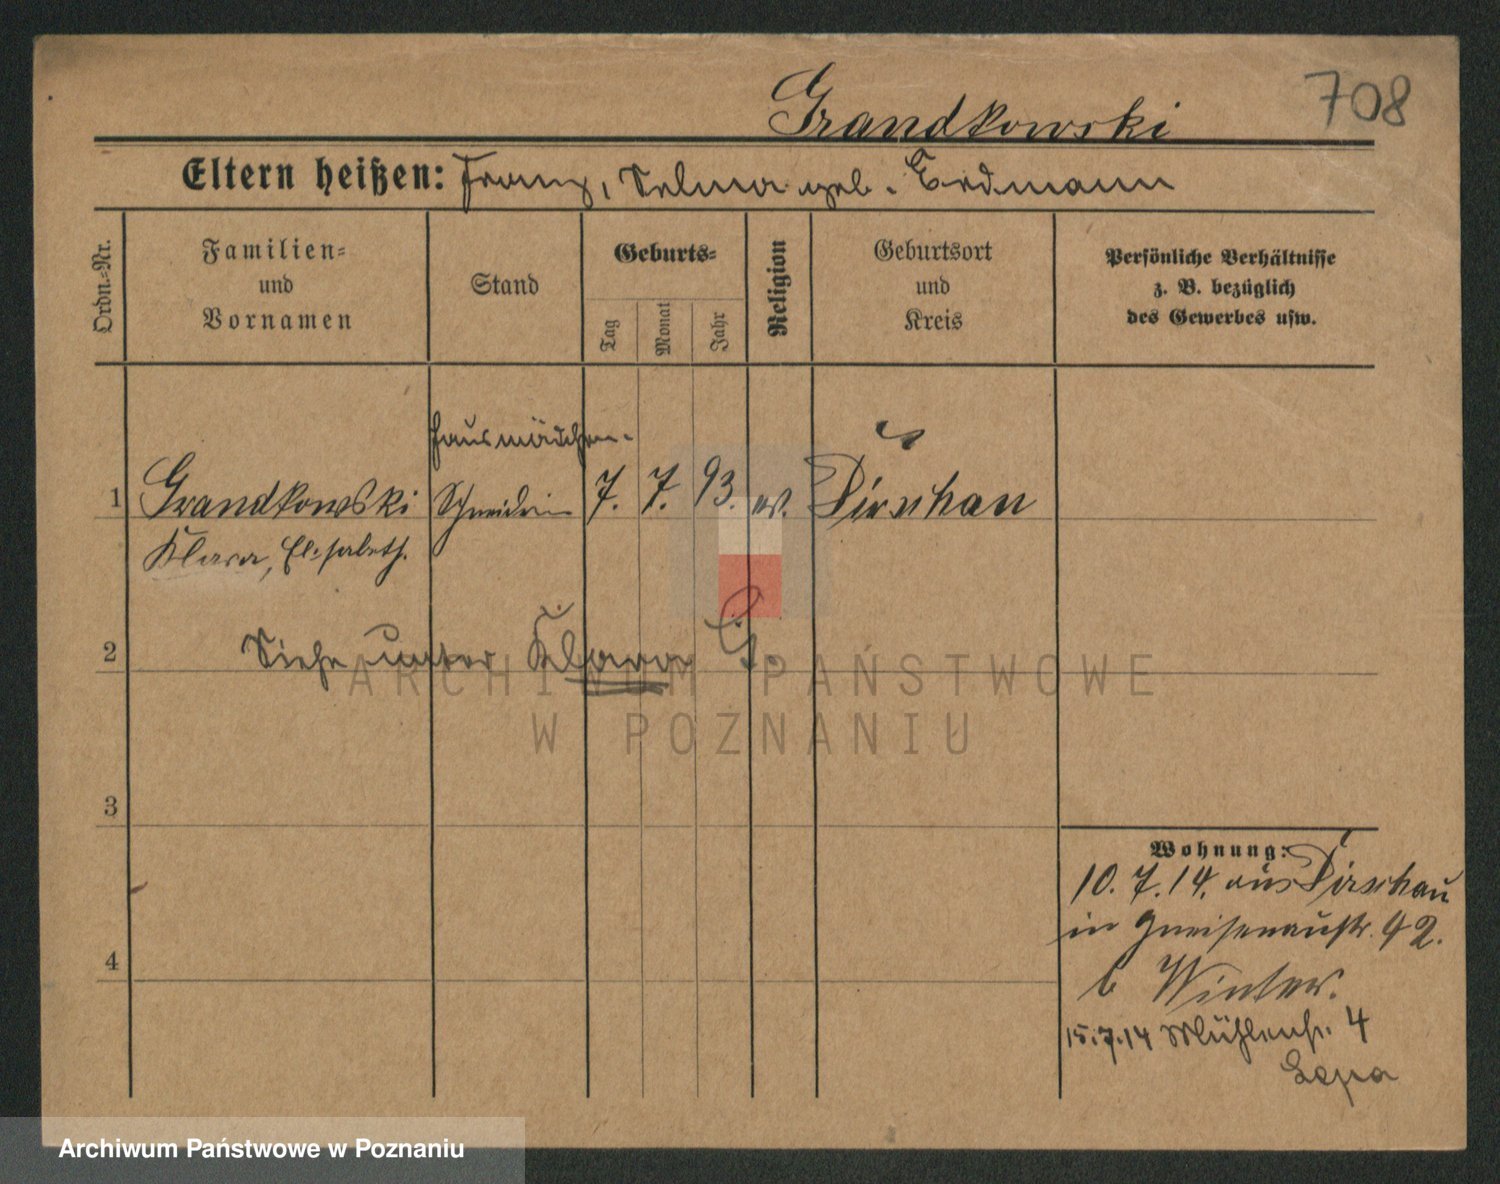 708
Grandkowski
Eltern heißen: Franz, Selma geb. Erdmann
Ordn.-Nr.
Familien-
und
Vornamen
Stand
Geburts-
Tag
Monat
Jahr
Religion
Geburtsort
und
Kreis
Persönliche Verhältnisse
z. B. bezüglich
des Gewerbes usw.
Hausmädchen-
1 Grandkowski Schneiderin 7. 7. 93. ev. Dirschau
Klara, Elisabeth.
2 Siehe unter Klara G.
ARCHIWUM PAŃSTWOWE
W POZNANIU
3
4
Wohnung:
10.7.14. aus Dirschau
in Gneisenaustr. 42.
b Winter.
15.7.14 Mühlenstr. 4
Lepa
Archiwum Państwowe w Poznaniu